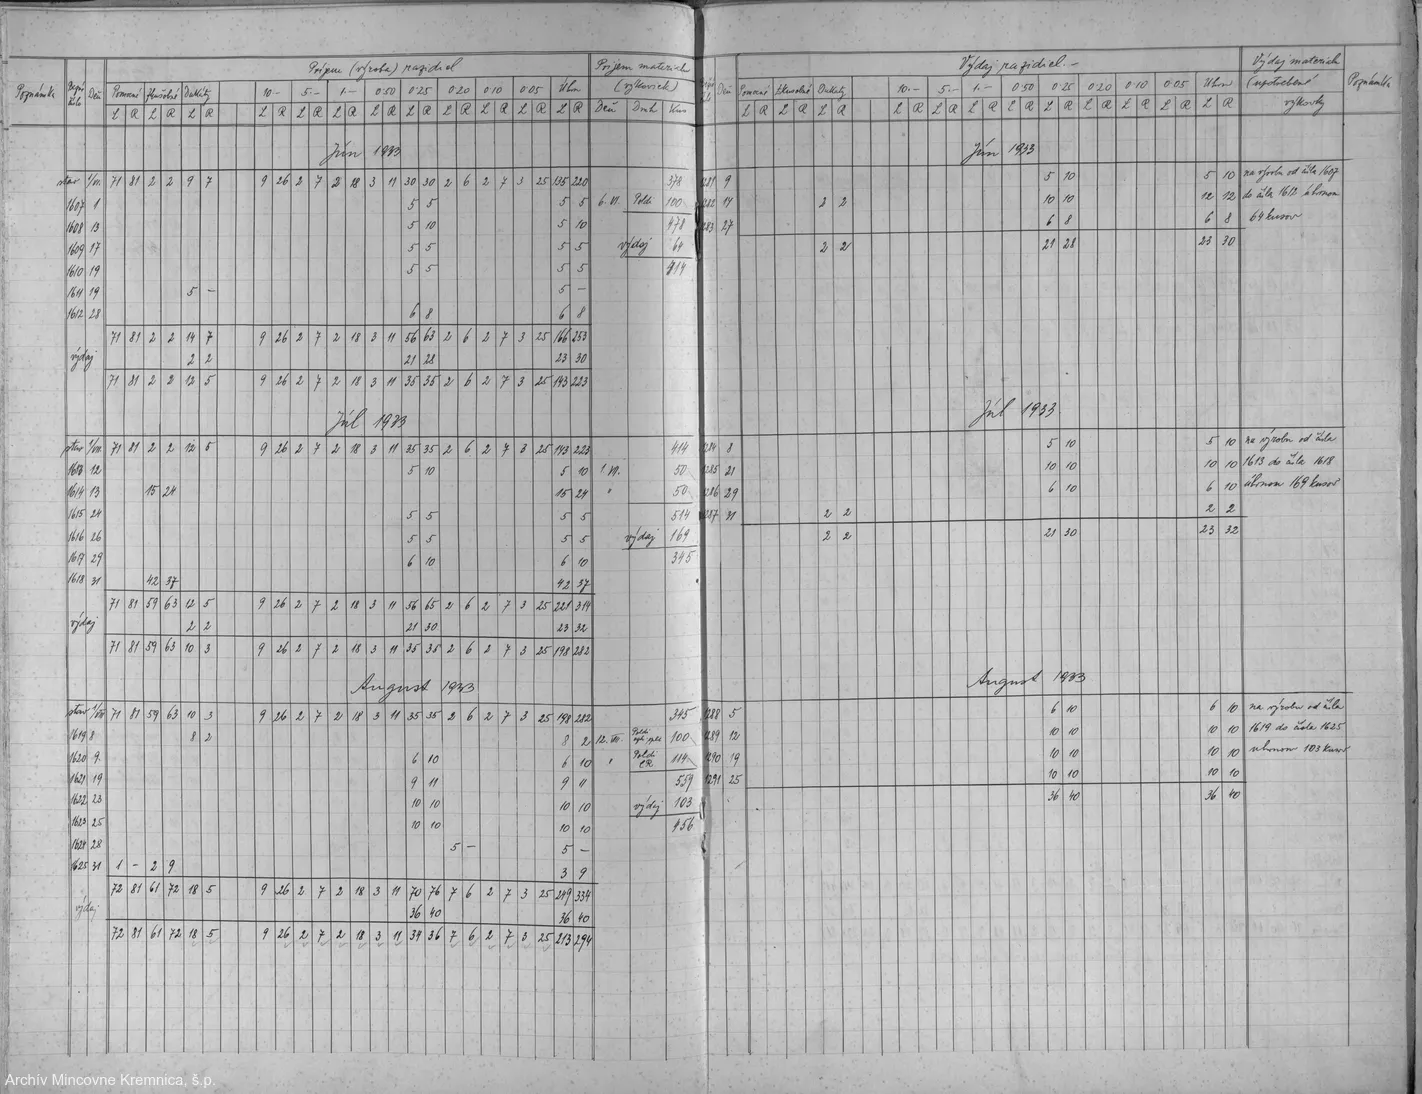 Prípis (výroba) razidiel
Príjem materich
(výkoviek)
Poznámka Deň Pomocné Skusobné Dukáty 10.- 5.- 1.- 0.50 0.25 0.20 0.10 0.05 Úhrn Deň Druh Kus
L R L R L R L R L R L R L R L R L R L R L R L R
Jún 1933
stav 1/VI. 71 81 2 2 9 7 9 26 2 7 2 18 3 11 30 30 2 6 2 7 3 25 135 220 378
1607 1 5 5 5 5 6. VI. Poldi 100
1608 13 5 10 5 10 478
1609 17 5 5 5 5 výdaj 64
1610 19 5 5 5 5 414
1611 19 5 – 5 –
1612 28 6 8 6 8
71 81 2 2 14 7 9 26 2 7 2 18 3 11 56 63 2 6 2 7 3 25 166 253
výdaj 2 2 21 28 23 30
71 81 2 2 12 5 9 26 2 7 2 18 3 11 35 35 2 6 2 7 3 25 143 223
Júl 1933
stav 1/VII. 71 81 2 2 12 5 9 26 2 7 2 18 3 11 35 35 2 6 2 7 3 25 143 223 414
1613 12 5 10 5 10 1. VII. 50
1614 13 15 24 15 24 " 50
1615 24 5 5 5 5 514
1616 26 5 5 5 5 výdaj 169
1617 29 6 10 6 10 345
1618 31 42 37 42 37
71 81 59 63 12 5 9 26 2 7 2 18 3 11 56 65 2 6 2 7 3 25 221 314
výdaj 2 2 21 30 23 32
71 81 59 63 10 3 9 26 2 7 2 18 3 11 35 35 2 6 2 7 3 25 198 282
August 1933
stav 1/VIII 71 81 59 63 10 3 9 26 2 7 2 18 3 11 35 35 2 6 2 7 3 25 198 282 345
1619 8 8 2 8 2 12. VIII. Poldi 100
1620 9. 6 10 6 10 " Poldi CR 114
1621 19 9 11 9 11 559
1622 23 10 10 10 10 výdaj 103
1623 25 10 10 10 10 456
1624 28 5 – 5 –
1625 31 1 – 2 9 3 9
72 81 61 72 18 5 9 26 2 7 2 18 3 11 70 76 7 6 2 7 3 25 249 334
výdaj 36 40 36 40
72 81 61 72 18 5 9 26 2 7 2 18 3 11 34 36 7 6 2 7 3 25 213 294
Výdaj razidiel.-
Výdaj materich
(upotrebené
výkovky
Deň Pomocné Skusobné Dukáty 10.- 5.- 1.- 0.50 0.25 0.20 0.10 0.05 Úhrn Poznámka
L R L R L R L R L R L R L R L R L R L R L R L R
Jún 1933
1281 9 5 10 5 10 na výrobu od čísla 1607
1282 14 2 2 10 10 12 12 do čísla 1612 úhrnom
1283 27 6 8 6 8 64 kusov
2 2 21 28 23 30
Júl 1933
1284 8 5 10 5 10 na výrobu od čísla
1285 21 10 10 10 10 1613 do čísla 1618
1286 29 6 10 6 10 úhrnom 169 kusov
1287 31 2 2 2 2
2 2 21 30 23 32
August 1933
1288 5 6 10 6 10 na výrobu od čísla
1289 12 10 10 10 10 1619 do čísla 1625
1290 19 10 10 10 10 úhrnom 103 kusov
1291 25 10 10 10 10
36 40 36 40
Archív Mincovne Kremnica, š.p.